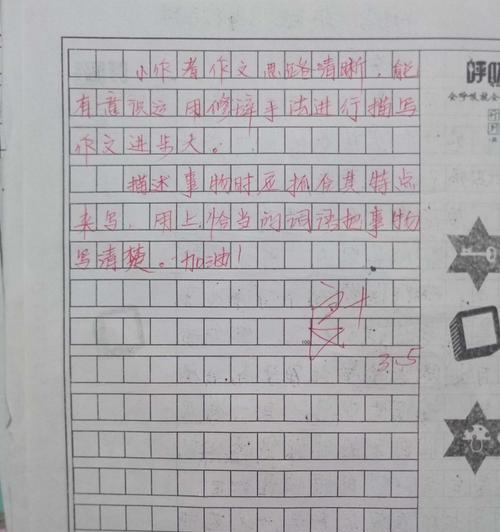 小作者作文思路清晰，能
有意识运用修辞手法进行描写
作文进步大。
描述事物时应抓住其特点
来写，用上恰当的词语把事物
写清楚。加油！
3.5
呼吸
会呼吸就会